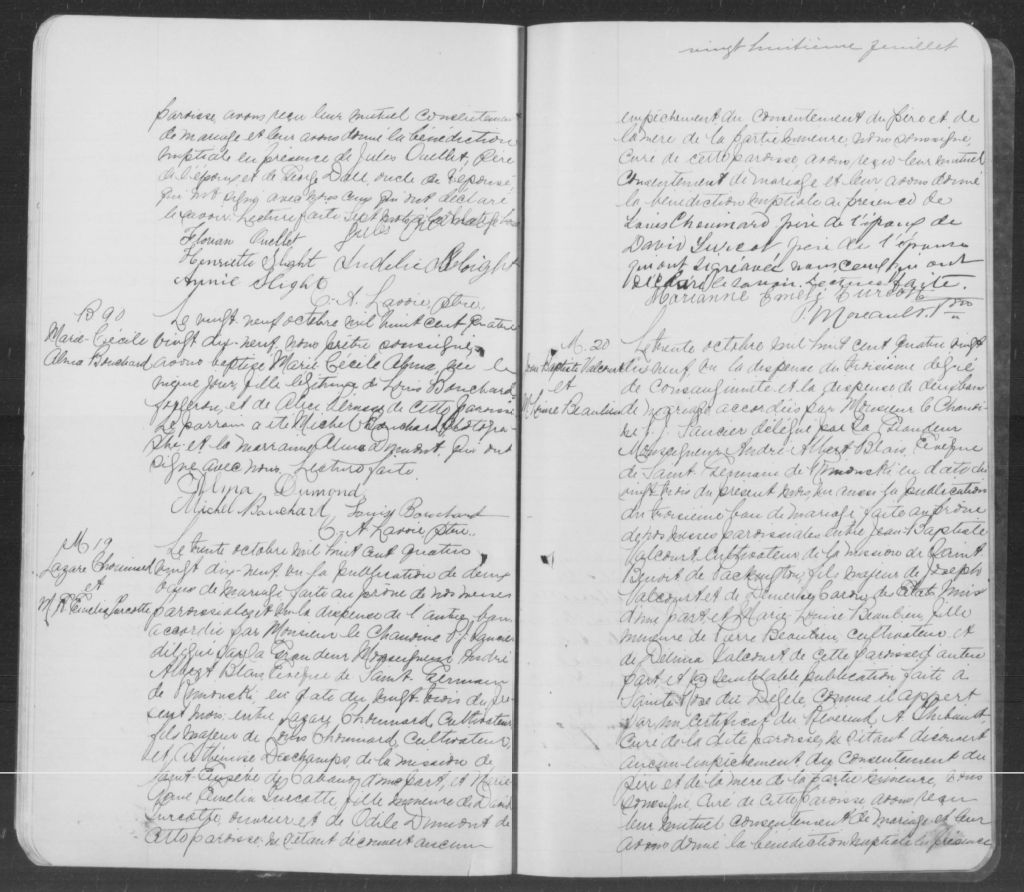 paroisse avons reçu leur mutuel consentement
de mariage et leur avons donné la bénédiction
nuptiale en présence de Jules Ouellet, père
de l'époux et de George Dall, oncle de l'épouse,
qui ont signé avec nous ceux qui ont déclaré
le savoir. Lecture faite.
Florian Ouellet
Henriette Slight
Annie Slight
C. A. Lavoie, ptre.
B 90
Marie-Cécile
Alma Bouchard
Le vingt neuf octobre mil huit cent quatre
vingt dix-neuf, nous prêtre soussigné,
avons baptisé Marie Cécile Alma, née le
même jour, fille légitime de Louis Bouchard,
forgeron, et de Alice de cette paroisse.
Le parrain a été Michel Bouchard, photogra-
phe et la marraine Alma Dumont, qui ont
signé avec nous. Lecture faite.
Alma Dumond
Michel Bouchart, Louis Bouchard
C. A. Lavoie ptre.
M 19
Lazare Chouinard
et
M. R. Emelia Turcotte
Le trente octobre mil huit cent quatre
vingt dix-neuf, vu la publication de deux
bans de mariage faite au prône de nos messes
paroissiales, et vu la dispense de l'autre ban
accordée par Monsieur le Chanoine
délégué par sa Grandeur Monseigneur André
Albert Blais Evêque de Saint Germain
de Rimouski en date du vingt trois du pré-
sent mois, entre Lazare Chouinard, cultivateur,
fils majeur de Louis Chouinard, cultivateur,
et Deschamps, de la mission de
Saint Eusèbe de Cabano, d'une part, et Marie
Rose Emelia Turcotte, fille mineure de David
Turcotte, ouvrier et de Odile Dumont de
cette paroisse, ne s'étant découvert aucun
vingt huitième feuillet
empêchement du consentement du père et de
la mère de la partie mineure, nous soussigné,
Curé de cette paroisse, avons reçu leur mutuel
consentement de mariage et leur avons donné
la bénédiction nuptiale en présence de
Louis Chouinard père de l'époux de
David Turcot père de l'épouse
qui ont signé avec nous ceux qui ont
déclaré le savoir. Lecture faite.
Marianne Emely Turcott
Moreault. Ptre
M. 20
Jean Baptiste Valcourt
et
M. Louise Beaulieu
Le trente octobre mil huit cent quatre vingt
dix neuf vu la dispense du troisième degré
de consanguinité et la dispense de deux bans
de mariage accordées par Monsieur le Chanoi-
ne J. Saucier délégué par Sa Grandeur
Monseigneur André-Albert Blais, Evêque
de Saint Germain de Rimouski en date du
vingt trois du présent mois, vu aussi la publication
du troisième ban de mariage faite au prône
de nos messes paroissiales entre Jean-Baptiste
Valcourt, cultivateur de la mission de Saint
Benoit de Packington, fils majeur de Joseph
Valcourt et de Demerise Caron, des Etats Unis
d'une part, et Marie Louise Beaulieu, fille
mineure de Pierre Beaulieu, cultivateur et
de Delvina Valcourt de cette paroisse, d'autre
part, et la semblable publication faite à
Sainte Rose du Dégelé, comme il appert
par un certificat du Révérend A. Thibault,
Curé de la dite paroisse, ne s'étant découvert
aucun empêchement du consentement du
père et de la mère de la partie mineure, nous
soussigné, Curé de cette paroisse avons reçu
leur mutuel consentement de mariage et leur
avons donné la bénédiction nuptiale en présence